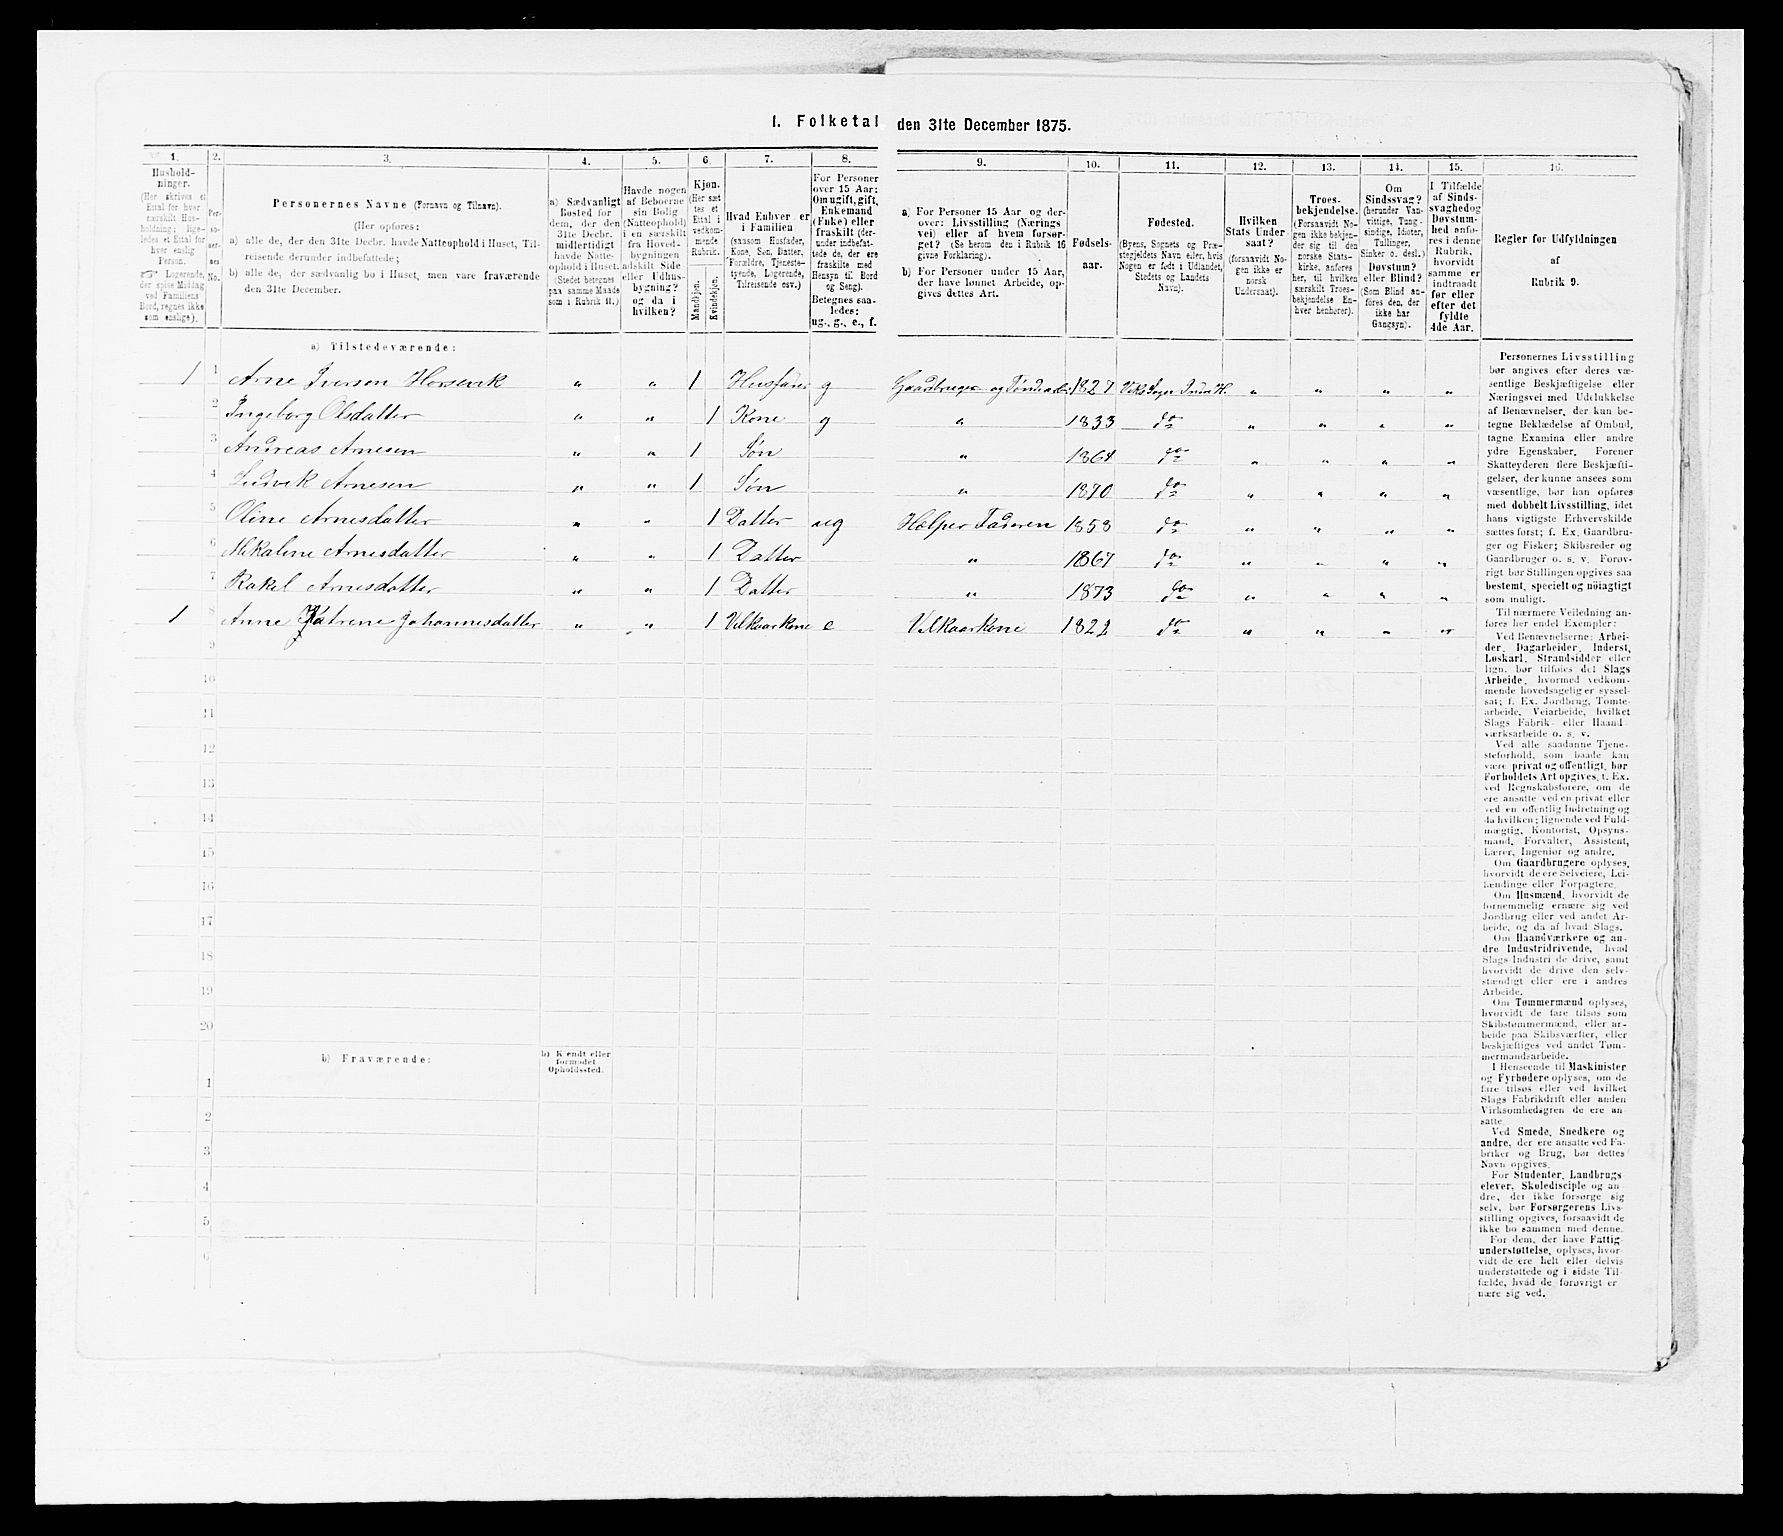 I. Folketal den 31te December 1875.
1. 2. 3. 4. 5. 6. 7. 8. 9. 10. 11. 12. 13. 14. 15. 16.
Hushold-
ninger.
(Her skrives et
Ettal for hver
særskilt Hus-
holdning; lige-
ledes et Ettal for
hver enslig
Person.
☞ Logerende,
der spise Middag
ved Familiens
Bord, regnes ikke
som enslige).
Per-
so-
ner-
nes
No.
Personernes Navne (Fornavn og Tilnavn).
(Her opføres:
a) alle de, der den 31te Decbr. havde Natteophold i Huset, Til-
reisende derunder indbefattede;
b) alle de, der sædvanlig bo i Huset, men vare fraværende
den 31te December.
a) Sædvanligt
Bosted for
dem, der den
31te Decbr.
midlertidigt
havde Natte-
ophold i Huset.
(Stedet betegnes
paa samme Maade
som i Rubrik 11.)
Havde nogen
af Beboerne
sin Bolig
(Natteophold)
i en særskilt
fra Hoved-
bygningen
adskilt Side
eller Udhus-
bygning?
og da i
hvilken?
Kjøn.
(Her sæt-
tes et
Ettal i
vedkom-
mende
Rubrik.
Mandkjøn.
Kvindekjøn.
Hvad Enhver er
i Familien
(saasom Husfader,
Kone, Søn, Datter,
Forældre, Tjeneste-
tyende, Logerende,
Tilreisende osv.)
For Personer
over 15 Aar:
Om ugift, gift,
Enkemand
(Enke) eller
fraskilt (der-
under indbefat-
tede de, der ere
fraskilte med
Hensyn til Bord
og Seng).
Betegnes saa-
ledes:
ug., g., e., f.
a) For Personer 15 Aar og der-
over: Livsstilling (Nærings
vei) eller af hvem forsør-
get? (Se herom den i Rubrik 16
givne Forklaring).
b) For Personer under 15 Aar,
der have lønnet Arbeide, op-
gives dettes Art.
Fødsels-
aar.
Fødested.
(Byens, Sognets og Præ-
stegjeldets Navn eller, hvis
Nogen er født i Udlandet,
Stedets og Landets
Navn).
Hvilken
Stats Under
saat?
(forsaavidt No-
gen ikke er
norsk
Undersaat).
Troes-
bekjendelse.
(Forsaavidt No-
gen ikke bekjen-
der sig til den
norske Stats-
kirke, anføres
her, til hvilken
særskilt Troes-
bekjendelse En-
hver henhører).
Om
Sindssvag?
(herunder Van-
vittige, Tung-
sindige, Idioter,
Tullinger,
Sinker o. desl.)
Døvstum?
eller Blind?
(Som Blind an-
føres den, der
ikke har
Gangsyn).
I Tilfælde
af Sinds-
svaghed og
Døvstum-
hed anfø-
res i denne
Rubrik,
hvorvidt
samme er
indtraadt
før eller
efter det
fyldte
4de Aar.
Regler før Udfyldningen
af
Rubrik 9.
a) Tilstedeværende:
1 1 Arne Iversen Horsevik " " 1 Husfader g Gaardbruger og Tøndearb. 1827 Viks Sogn " " " "
2 Ingeborg Olsdatter " " 1 Kone g " 1833 do " " " "
3 Andreas Arnesen " " 1 Søn " 1864 do " " " "
4 Ludvik Arnesen " " 1 Søn " 1870 do " " " "
5 Oline Arnesdatter " " 1 Datter ug Hælper Faderen 1858 do " " " "
6 Mikaline Arnesdatter " " 1 Datter " 1867 do " " " "
7 Rakel Arnesdatter " " 1 Datter " 1873 do " " " "
1 8 Anne Katrene Johannesdatter " " 1 Velkaarkone e Velkaarkone 1822 do " " " "
9
10
11
12
13
14
15
16
17
18
19
20
b) Fraværende:
b) Kjendt eller
formodet
Opholdssted.
1
2
3
4
5
6
Personernes Livsstilling
bør angives efter deres væ-
sentlige Beskjæftigelse eller
Næringsvei med Udelukkelse
af Benævnelser, der kun be-
tegne Beklædelse af Ombud,
tagne Examina eller andre
ydre Egenskaber. Forener
Skatteyderen flere Beskjæfti-
gelser, der kunne ansees som
væsentlige, bør han opføres
med dobbelt Livsstilling, idet
hans vigtigste Erhvervskilde
sættes først; f. Ex. Gaardbru-
ger og Fisker; Skibsreder og
Gaardbruger o. s. v. Forøv-
rigt bør Stillingen opgives saa
bestemt, specielt og nøiagtigt
som muligt.
Til nærmere Veiledning an-
føres her endel Exempler:
Ved Benævnelserne: Arbei-
der, Dagarbeider, Inderst,
Løskarl, Strandsidder eller
lign. bør tilføies det Slags
Arbeide, hvormed vedkom-
mende hovedsagelig er syssel-
sat; f. Ex. Jordbrug, Tomte-
arbeide, Veiarbeide, hvilket
Slags Fabrik- eller Haand-
værksarbeide o. s. v.
Ved alle saadanne Tjene-
steforhold, som baade kan
være privat og offentligt, bør
Forholdets Art opgives, t. Ex.
ved Regnskabsførere, om de
ere ansatte ved en privat eller
ved en offentlig Indretning og
da hvilken; lignende ved Fuld-
mægtig, Kontorist, Opsyns-
mand, Forvalter, Assistent,
Lærer, Ingeniør og andre.
Om Gaardbrugere oplyses,
hvorvidt de ere Selveiere, Lei-
lændinge eller Forpagtere.
Om Husmænd, hvorvidt de
fornemmelig ernære sig ved
Jordbrug eller ved andet Ar-
beide, og da af hvad Slags.
Om Haandværkere og an-
dre Industridrivende, hvad
Slags Industri de drive, samt
hvorvidt de drive den selv-
stændigt eller ere i andres
Arbeide.
Om Tømmermænd oplyses,
hvorvidt de fare tilsøs som
Skibstømmermænd, eller ar-
beide paa Skibsværfter, eller
beskjæftiges ved andet Tøm-
mermandsarbeide.
I Henseende til Maskinister
og Fyrbødere oplyses, om de
fare tilsøs eller ved hvilket
Slags Fabrikdrift eller anden
Virksomhedsgren de ere an-
satte.
Ved Smede, Snedkere og
andre, der ere ansatte ved Fa-
briker og Brug, bør dettes
Navn opgives.
For Studenter, Landbrugs
elever, Skoledisciple og an-
dre, der ikke forsørge sig
selv, bør Forsørgerens Livs-
stilling opgives, forsaavidt de
ikke bo sammen med denne.
For dem, der have Fattig-
understøttelse, oplyses, hvor-
vidt de ere helt eller delvis
understøttede og i sidste Til-
fælde, hvad de forøvrigt er
nære sig ved.